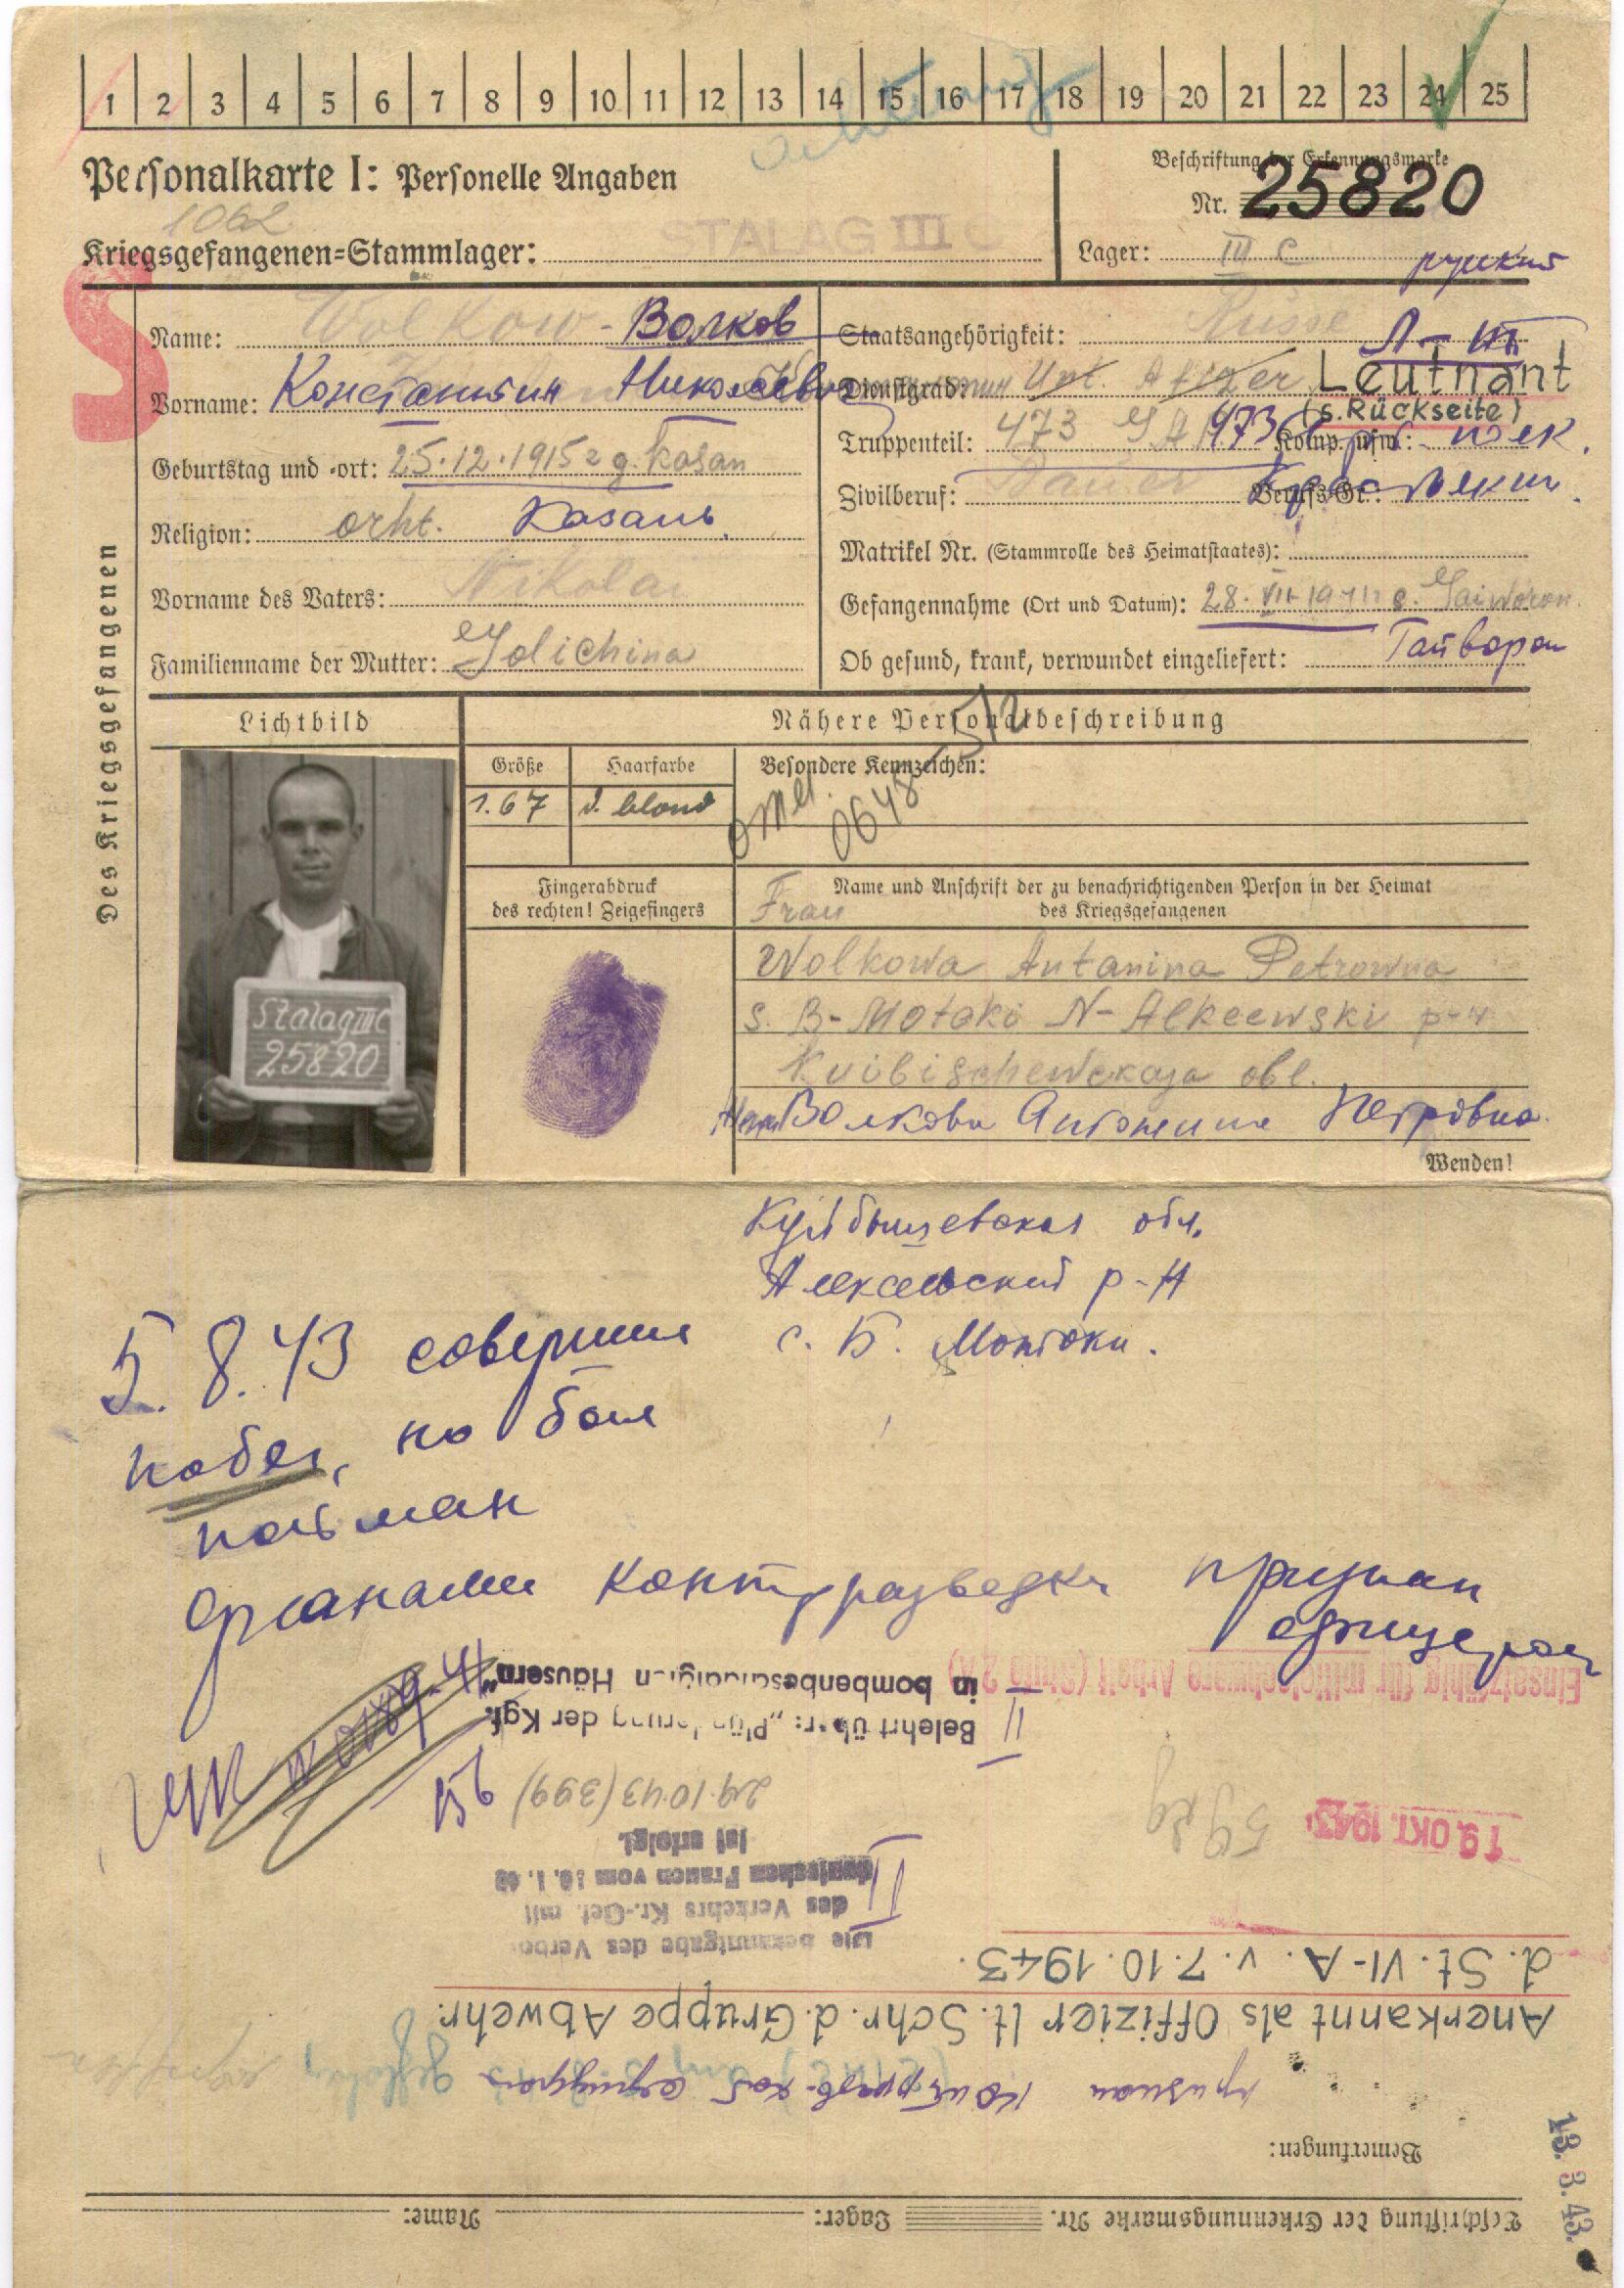 1 2 3 4 5 6 7 8 9 10 11 12 13 14 15 16 17 18 19 20 21 22 23 24 25
Personalkarte I: Personelle Angaben
Beschriftung der Erkennungsmarke
Nr. 25820
1062
Kriegsgefangenen-Stammlager: STALAG III C
Lager: III C
русский
S
Des Kriegsgefangenen
Name: Wolkow - Волков
Vorname: Константин Николаевич
Geburtstag und -ort: 25.12.1915 г. g. Kasan
Religion: orht. Казань
Vorname des Vaters: Nikolai
Familienname der Mutter: Golichina
Staatsangehörigkeit: Russe
Л-нт
Dienstgrad: Unt. Leutnant
(s. Rückseite)
Truppenteil: 473 Komp. usw.:
Zivilberuf: Bauer Berufs-Gr.:
Matrikel Nr. (Stammrolle des Heimatstaates):
Gefangennahme (Ort und Datum): 28. VII 1941 g. Gaiworon
Гайворон
Ob gesund, krank, verwundet eingeliefert:
Lichtbild
Nähere Personalbeschreibung
Größe
Haarfarbe
Besondere Kennzeichen:
1.67
d. blond
0648
512
Stalag III C
25820
Fingerabdruck
des rechten! Zeigefingers
Name und Anschrift der zu benachrichtigenden Person in der Heimat
des Kriegsgefangenen
Frau
Wolkowa Antanina Petrowna
s. B-Motaki N-Alkeewski р-н
Kuibischewskaja obl.
Жена Волкова Антонина Петровна
Wenden!
Куйбышевская обл.
Алексеевский р-н
с. Б. Мотаки.
5.8.43 совершил
побег, но был
пойман
Органами контрразведки признан
офицером
Einsatzfähig für mittelschwere Arbeit (Stufe 2A)
II
Belehrt über: "Plünderung der Kgf.
in bombenbeschädigten Häusern"
29.10.43 (399)
156
59 kg
19. OKT. 1943
II
Die Bekanntgabe des Verbots
des Verkehrs Kr.-Gef. mit
deutschen Frauen vom
ist erfolgt.
Anerkannt als Offizier lt. Schr. d. Gruppe Abwehr.
d. St. VI-A. v. 7.10.1943.
признан контрразв-кой офицером
Bemerkungen:
13. 3. 43.
Beschriftung der Erkennungsmarke Nr. Lager: Name: